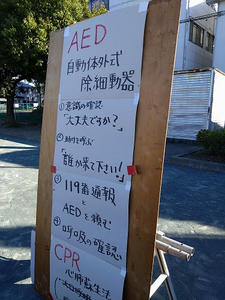 AED
自動体外式
除細動器
①意識の確認
「大丈夫ですか?」
②助けを呼ぶ
「誰か来て下さい!」
③119番通報
と
AEDを頼む
④呼吸の確認
CPR
心肺蘇生法